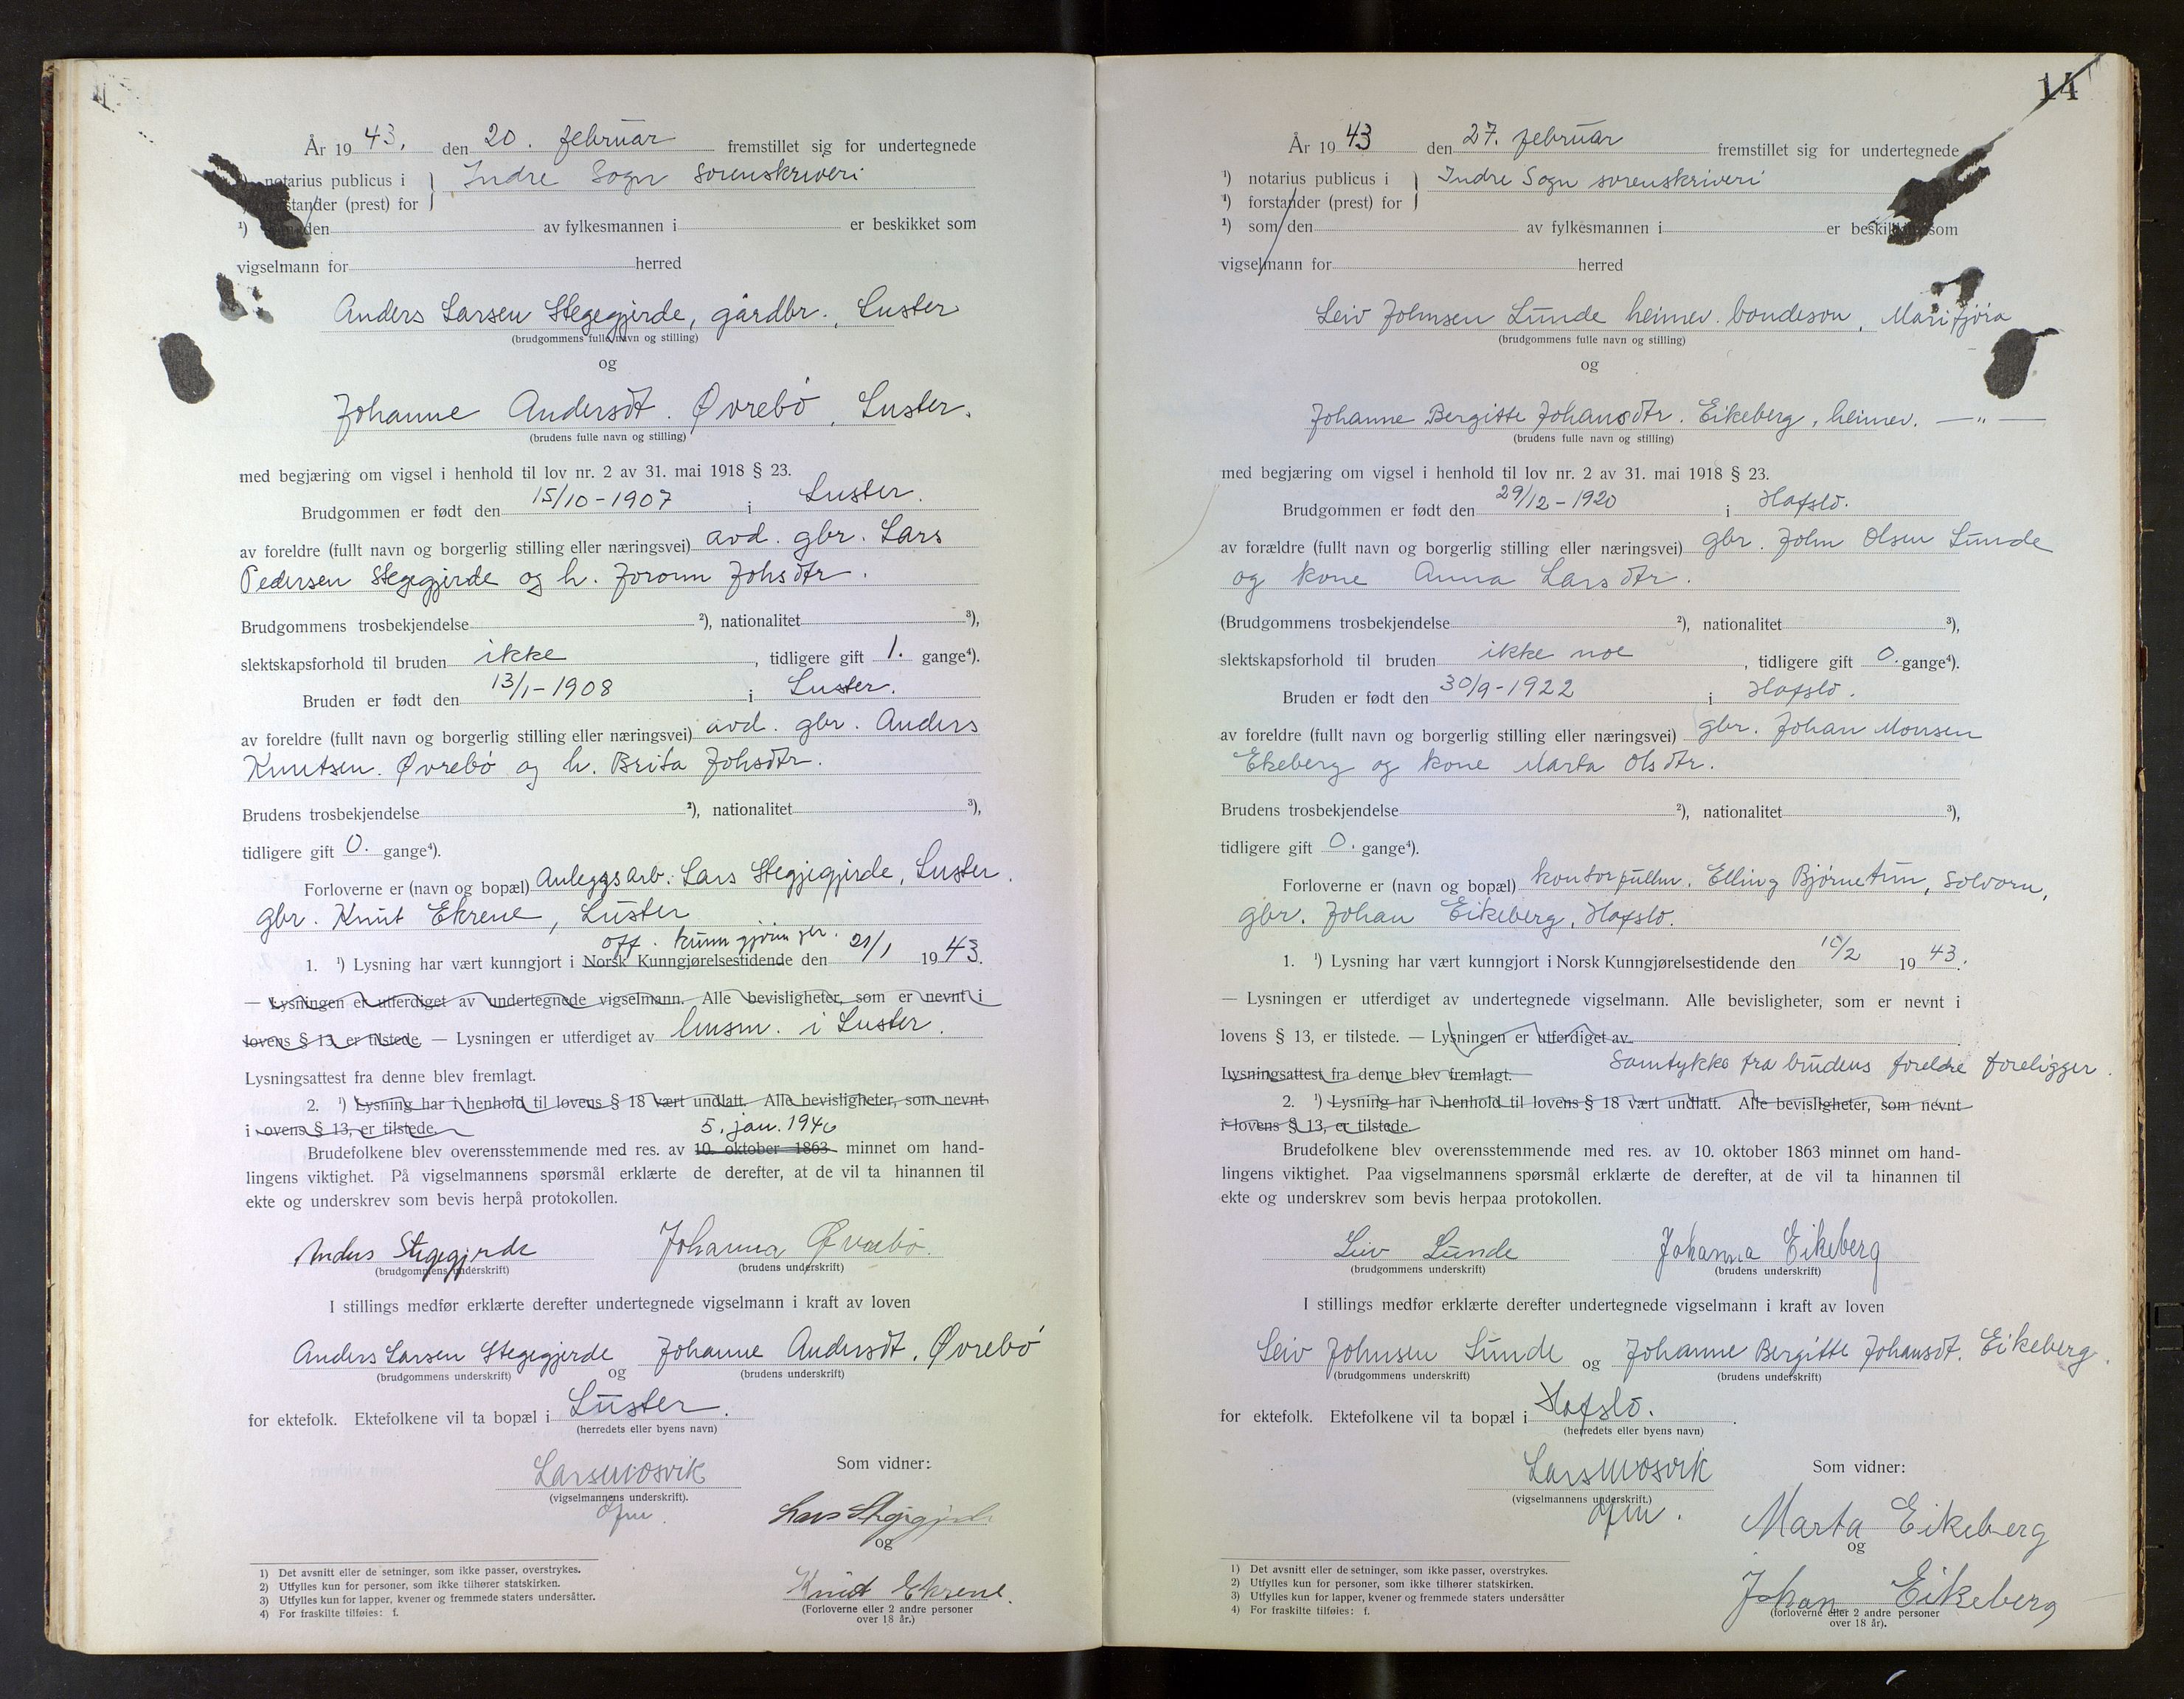 År 1943. den 20. februar fremstillet sig for undertegnede
notarius publicus i } Indre Sogn sorenskriveri
forstander (prest) for
¹) den av fylkesmannen i er beskikket som
vigselmann for herred
Anders Larsen Stegegjerde, gårdbr., Luster
(brudgommens fulle navn og stilling)
og
Johanne Andersdt. Øvrebø, Luster.
(brudens fulle navn og stilling)
med begjæring om vigsel i henhold til lov nr. 2 av 31. mai 1918 § 23.
Brudgommen er født den 15/10-1907 i Luster.
av foreldre (fullt navn og borgerlig stilling eller næringsvei) avd. gbr. Lars
Pedersen Stegegjerde og h. Joronn Johsdtr.
Brudgommens trosbekjendelse ²), nationalitet ³),
slektskapsforhold til bruden ikke, tidligere gift 1. gange⁴).
Bruden er født den 13/1-1908 i Luster.
av foreldre (fullt navn og borgerlig stilling eller næringsvei) avd. gbr. Anders
Knutsen. Øvrebø og h. Brita Johsdtr.
Brudens trosbekjendelse ²), nationalitet ³),
tidligere gift 0. gange⁴).
Forloverne er (navn og bopæl) Anleggsarb. Lars Stegjegjerde, Luster.
gbr. Knut Ekrene, Luster
off. kunngjøringer.
1. ¹) Lysning har vært kunngjort i Norsk Kunngjørelsestidende den 21/1 1943.
— Lysningen er utferdiget av undertegnede vigselmann. Alle bevisligheter, som er nevnt i
lovens § 13, er tilstede. — Lysningen er utferdiget av lensm. i Luster.
Lysningsattest fra denne blev fremlagt.
2. ¹) Lysning har i henhold til lovens § 18 vært undlatt. Alle bevisligheter, som nevnt
i lovens § 13, er tilstede. 5. jan. 1940
Brudefolkene blev overensstemmende med res. av 10. oktober 1863 minnet om hand-
lingens viktighet. På vigselmannens spørsmål erklærte de derefter, at de vil ta hinannen til
ekte og underskrev som bevis herpå protokollen.
Anders Stegegjerde Johanna Øvrebø.
(brudgommens underskrift) (brudens underskrift)
I stillings medfør erklærte derefter undertegnede vigselmann i kraft av loven
Anders Larsen Stegegjerde og Johanne Andersdt. Øvrebø
(brudgommens underskrift) (brudens underskrift)
for ektefolk. Ektefolkene vil ta bopæl i Luster.
(herredets eller byens navn)
Lars Mosvik Som vidner:
(vigselmannens underskrift).
Lars Stegjegjerde
og
Knut Ekrene.
(Forloverne eller 2 andre personer
over 18 år.)
1) Det avsnitt eller de setninger, som ikke passer, overstrykes.
2) Utfylles kun for personer, som ikke tilhører statskirken.
3) Utfylles kun for lapper, kvener og fremmede staters undersåtter.
4) For fraskilte tilføies: f.
14
År 1943 den 27. februar fremstillet sig for undertegnede
¹) notarius publicus i } Indre Sogn sorenskriveri
¹) forstander (prest) for
¹) som den av fylkesmannen i er beskikket som
vigselmann for herred
Leiv Johnsen Lunde heimev. bondeson, Marifjøra
(brudgommens fulle navn og stilling)
og
Johanne Bergitte Johansdtr. Eikeberg, heimev. — „ —
(brudens fulle navn og stilling)
med begjæring om vigsel i henhold til lov nr. 2 av 31. mai 1918 § 23.
Brudgommen er født den 29/12-1920 i Hafslo.
av forældre (fullt navn og borgerlig stilling eller næringsvei) gbr. John Olsen Lunde
og kone Anna Larsdtr.
(Brudgommens trosbekjendelse ²), nationalitet ³),
slektskapsforhold til bruden ikke noe, tidligere gift 0. gange⁴).
Bruden er født den 30/9-1922 i Hafslo.
av foreldre (fullt navn og borgerlig stilling eller næringsvei) gbr. Johan Monsen
Ekeberg og kone Marta Olsdtr.
Brudens trosbekjendelse ²), nationalitet ³),
tidligere gift 0. gange⁴).
Forloverne er (navn og bopæl) kontorfullm. Elling Bjørnetun, Solvorn,
gbr. Johan Eikeberg, Hafslo.
1. ¹) Lysning har vært kunngjort i Norsk Kunngjørelsestidende den 10/2 1943.
— Lysningen er utferdiget av undertegnede vigselmann. Alle bevisligheter, som er nevnt i
lovens § 13, er tilstede. — Lysningen er utferdiget av
Lysningsattest fra denne blev fremlagt. — Samtykke fra brudens foreldre foreligger.
2. ¹) Lysning har i henhold til lovens § 18 vært undlatt. Alle bevisligheter, som nevnt
i lovens § 13, er tilstede.
Brudefolkene blev overensstemmende med res. av 10. oktober 1863 minnet om hand-
lingens viktighet. Paa vigselmannens spørsmål erklærte de derefter, at de vil ta hinannen til
ekte og underskrev som bevis herpaa protokollen.
Leiv Lunde Johanna Eikeberg
(brudgommens underskrift) (brudens underskrift)
I stillings medfør erklærte derefter undertegnede vigselmann i kraft av loven
Leiv Johnsen Lunde og Johanne Bergitte Johansdt. Eikeberg.
(brudgommens underskrift) (brudens underskrift)
for ektefolk. Ektefolkene vil ta bopæl i Hafslo.
(herredets eller byens navn)
Lars Mosvik Som vidner:
(vigselmannens underskrift.)
Marta Eikeberg
og
Johan Eikeberg
(forloverne eller 2 andre personer
over 18 år).
1) Det avsnitt eller de setninger, som ikke passer, overstrykes.
2) Utfylles kun for personer, som ikke tilhører statskirken.
3) Utfylles kun for lapper, kvener og fremmede staters undersåtter
4) For fraskilte tilføies: f.